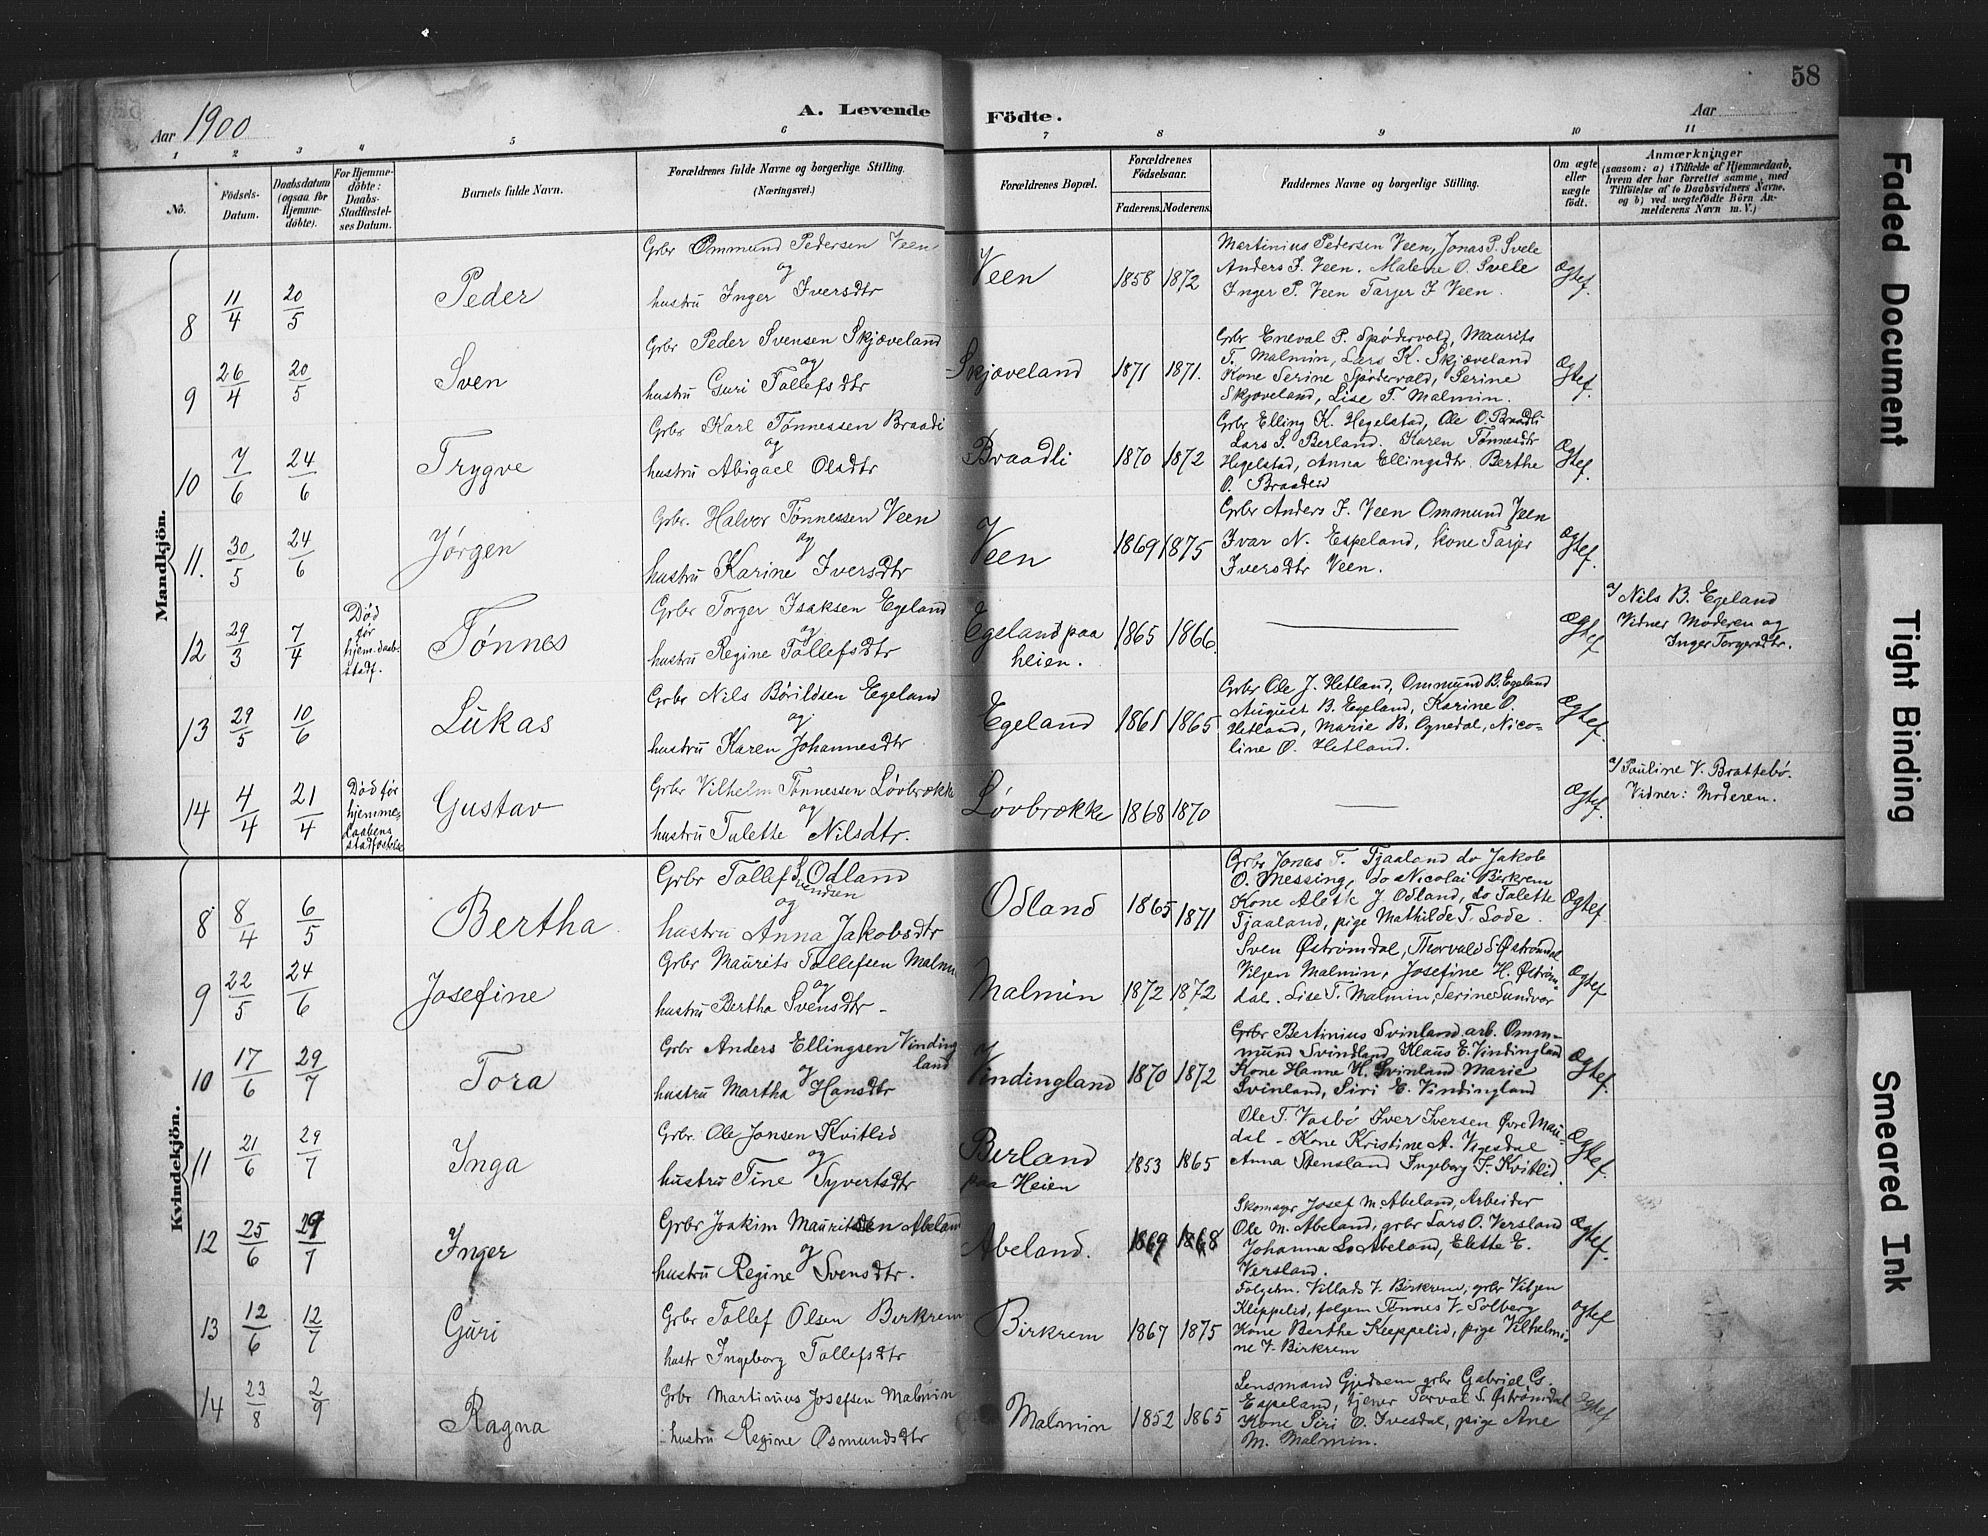 58
Aar 1900
A. Levende Födte.
Aar
1 2 3 4 5 6 7 8 9 10 11
Nô.
Födsels-Datum.
Daabsdatum (ogsaa for Hjemme-döbte).
For Hjemme-döbte: Daabs-Stadfæstel-ses Datum.
Barnets fulde Navn.
Forældrenes fulde Navne og borgerlige Stilling.
(Næringsvei.)
Forældrenes Bopæl.
Forældrenes Födselsaar.
Faderens. Moderens.
Faddernes Navne og borgerlige Stilling.
Om ægte eller uægte födt.
Anmærkninger
(saasom: a) i Tilfælde af Hjemmedaab,
hvem der har forrettet samme, med
Tilföielse af to Daabsvidners Navne,
og b) ved uægtefödte Börn An-
melderens Navn m. V.)
Mandkjön.
8 11/4 20/5 Peder
Grbr Ommund Pedersen Veen
og
hustru Inger Iversdtr
Veen 1858 1872
Martinius Pedersen Veen, Jonas P. Svele
Anders I. Veen. Malene O. Svele
Inger P. Veen Tarjer I Veen.
Ægtef.
9 26/4 20/5 Sven
Grbr Peder Svensen Skjæveland
og
hustru Guri Tollefsdtr
Skjæveland 1871 1871.
Grbr Eneval P. Spødervold, Maurits
T. Malmin, Lars K. Skjæveland
Kone Serine Spødervold, Serine
Skjæveland, Lise T. Malmin.
Ægtef.
10 7/6 24/6 Trygve
Grbr Karl Tønnessen Braadli
og
hustru Abigael Olsdtr
Braadli 1870 1872
Grbr Elling K. Hegelstad, Ole O. Braadli
Lars S. Berland. Karen Tønnesdtr
Hegelstad, Anna Ellingsdtr Berthe
O. Braadli
Ægtef.
11. 30/5 24/6 Jørgen
Grbr. Halvor Tønnessen Veen
og
hustru Karine Iversdtr
Veen 1869 1875
Grbr Anders I. Veen Ommund Veen
Ivar N. Espeland, kone Tarjer
Iversdtr Veen.
Ægtef.
12 29/3 7/4
Død
før
hjem.daabs
stadf.
Tønnes
Grbr Torger Isaksen Egeland
og
hustru Regine Tollefsdtr
Egeland paa
heien.
1865 1866.
Ægtef
a/ Nils B. Egeland
Vidner Moderen og
Inger Torgersdtr.
13 29/5 10/6 Lukas
Grbr Nils Børildsen Egeland
og
hustru Karen Johannesdtr
Egeland 1861 1865
Grbr Ole J. Hetland, Ommund B. Egeland
August B. Egeland, Karine O.
Hetland, Marie B. Ognedal, Nico-
line O. Hetland.
Ægtef.
14 4/4 21/4
Død før
hjemme-
daabens
stadfæstelse
Gustav
Grbr Vilhelm Tønnessen Løvbrække
og
hustru Tulette Nilsdtr.
Løvbrække 1868 1870
Ægtef.
a/ Pauline V. Brattebø.
Vidner: Moderen.
Kvindekjön.
8 8/4 6/5 Bertha
Grbr Tollef Svendsen Odland
og
hustru Anna Jakobsdtr
Odland 1865 1871
Grbr Jonas T. Tjaaland do Jakob
O. Messing, do Nicolai Birkrem
Kone Alette J. Odland, do Talette
Tjaaland, pige Mathilde T. Lode.
Ægtef
9 22/5 24/6 Josefine
Grbr Maurits Tollefsen Malmin
og
hustru Bertha Svensdtr -
Malmin 1872 1872
Sven Østrømdal, Thorvald S Østrømdal
Viljen Malmin, Josefine H. Østrøm-
dal. Lise T. Malmin, Serine Sundvor
Ægtef
10 17/6 29/7 Tora
Grbr Anders Ellingsen Vinding
land
og
hustru Martha Hansdtr
Vindingland 1870 1872
Grbr Bertinius Svinland arb. Omm-
mund Svindland, Klaus E. Vindingland
Kone Hanne H. Svinland Marie
Svinland, Siri E. Vindingland
Ægtef.
11 21/6 29/7 Inga
Grbr. Ole Jonsen Kvitlid
og
hustru Tine Syvertsdtr
Berland
paa Heien
1853 1865
Ole T. Vasbø Iver Iversen Øvre Mau-
dal - Kone Kristine A. Vigesdal
Anna Stensland Ingeborg J. Kvitlid.
Ægtef.
12 25/6 29/7 Inger
Grbr Joakim Mauritsen Abeland
og
hustru Regine Svensdtr.
Abeland. 1869 1868
Skomagr Josef M. Abeland, Arbeider
Ole M. Abeland, grbr Lars O. Versland
Johanna Abeland, Elette E.
Versland.
Ægtef.
13 12/6 12/7 Guri
Grbr Tollef Olsen Birkrem
hustr Ingeborg Tollefsdtr
Birkrem 1867 1875
Folgehn. Villads V. Birkrem, grbr Viljen
Kleppelid, folgem Tønnes V. Solberg
Kone Berthe Kleppelid, pige Vilhelmi-
ne V. Birkrem
ægtef
14 23/8 2/9 Ragna
Grbr Martinius Josefsen Malmin
hustru Regine Osmundsdtr
Malmin 1852 1865
Lensmand Gjedrem grbr Gabriel G.
Espeland, tjener Torval S. Østrømdal
Kone Siri O. Ivesdal, pige Ane
M. Malmin.
Ægtef
Faded Document
Tight Binding
Smeared Ink